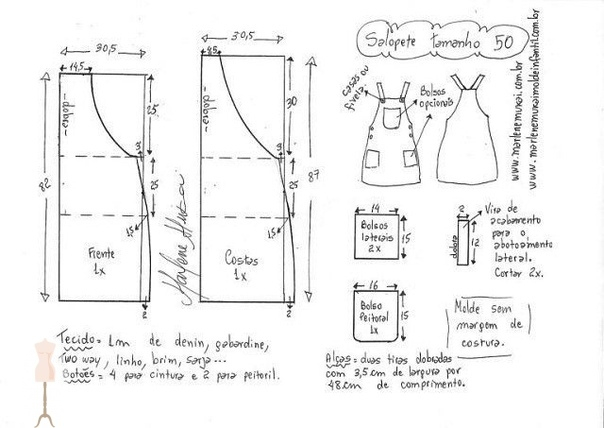 Salopete tamanho 50
www.marlenemukai.com.br
www.marlenemukaimoldeinfantil.com.br
30,5
14,5
dobra
25
82
Frente
1x
1,5
2
30,5
8,5
dobra
30
87
Costas
1x
1,5
2
Marlene Mukai
casas ou
fivela
Bolsos
opcionais
14
Bolsos
laterais
2x
15
2
dobra
12
Vira de
acabamento
para o
abotoamento
lateral.
Cortar 2x.
16
Bolso
Peitoral
1x
15
Molde sem
margem de
costura.
Tecido = 1m de denin, gabardine,
Two way, linho, brim, sarja...
Botões = 4 para cintura e 2 para peitoril.
Alças = duas tiras dobradas
com 3,5 cm de largura por
48 cm de comprimento.